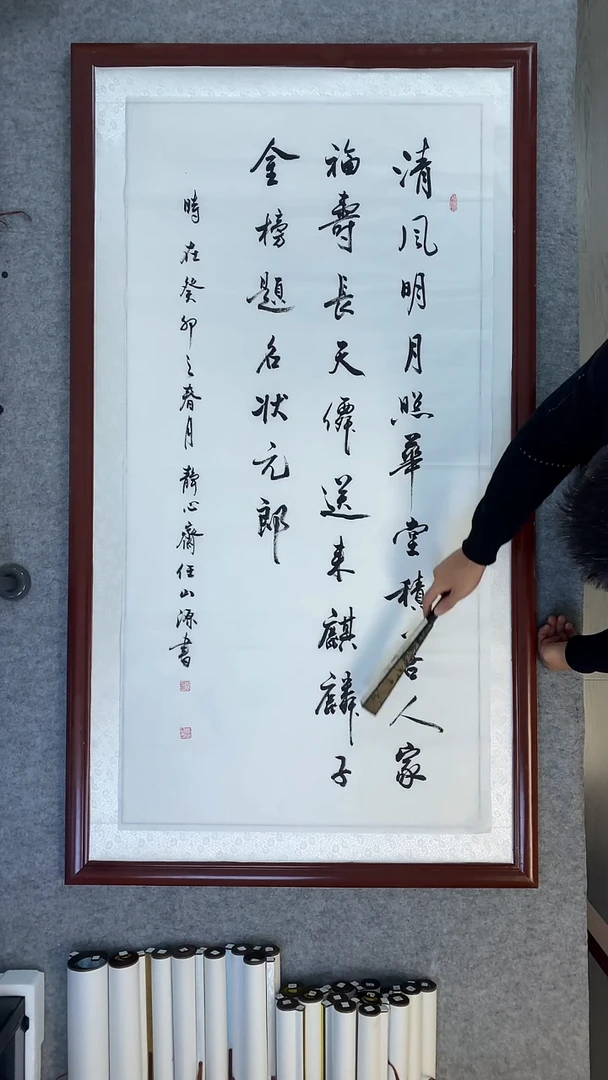 清風明月照華堂積人家
福壽長天僊送来麒麟子
金榜題名状元郎
時在癸卯之春月靜心齋任山源書